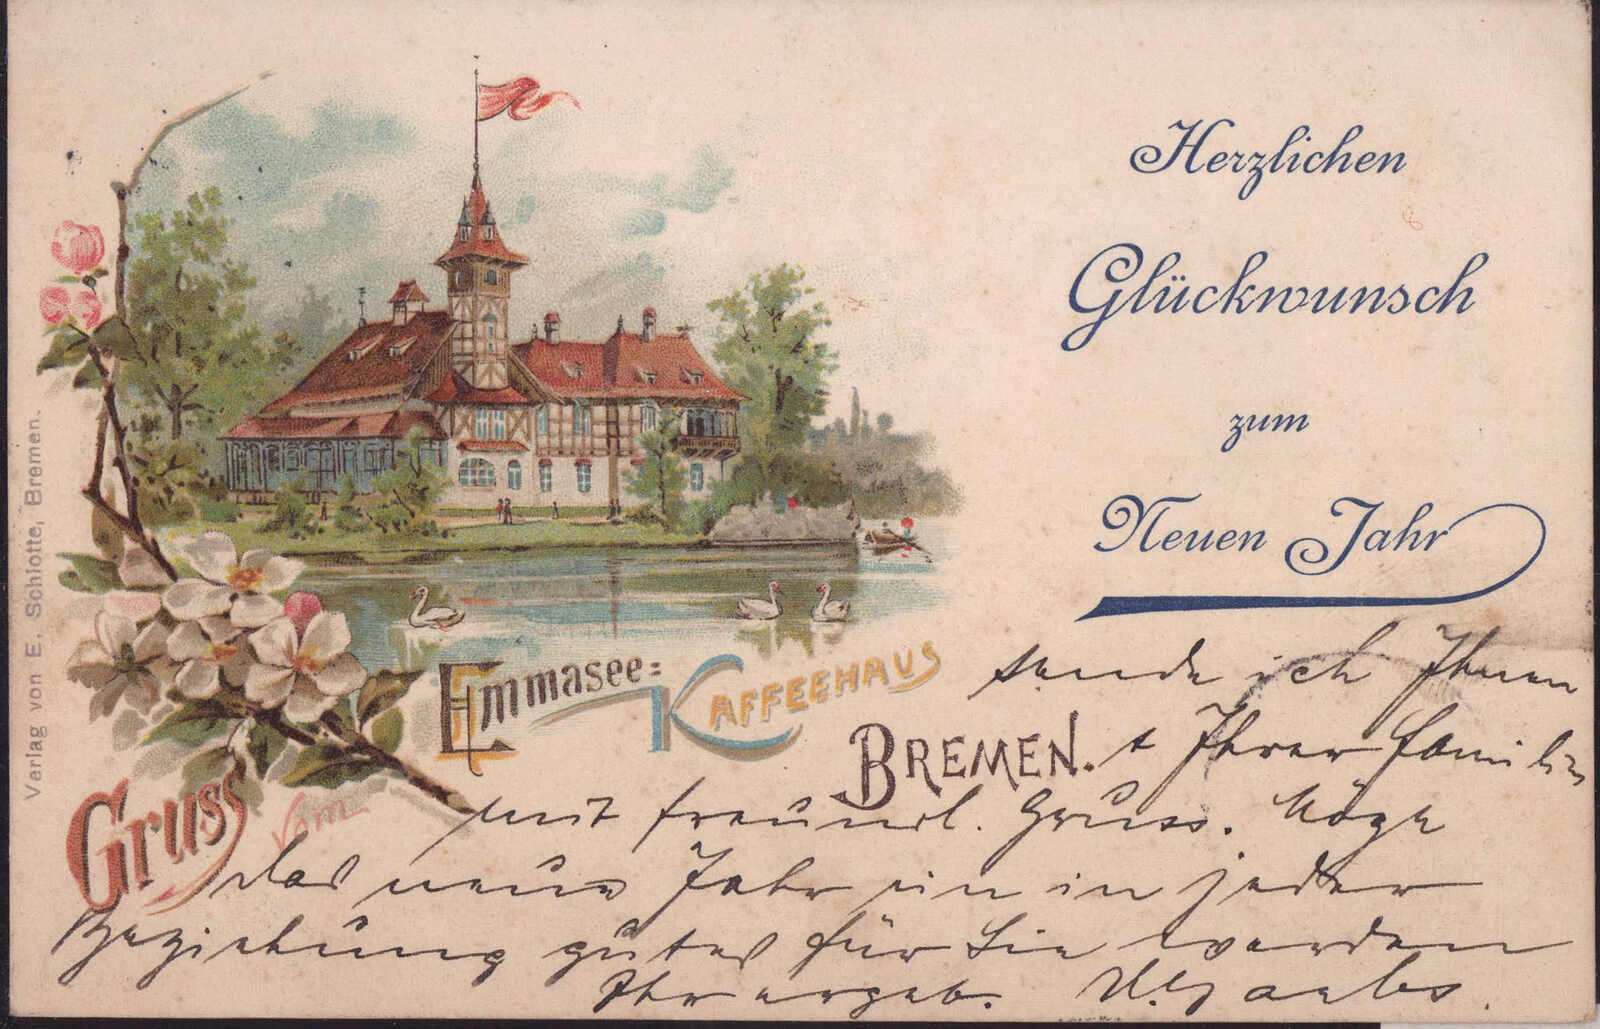 Herzlichen
Glückwunsch
zum
Neuen Jahr
sende ich Ihnen
+ Ihrer Familie
mit freundl. Gruss. Möge
das neue Jahr ein in jeder
Beziehung gutes für Sie werden
Ihr ergeb.
Gruss vom
Emmasee=
Kaffeehaus
Bremen.
Verlag von E. Schlotte, Bremen.